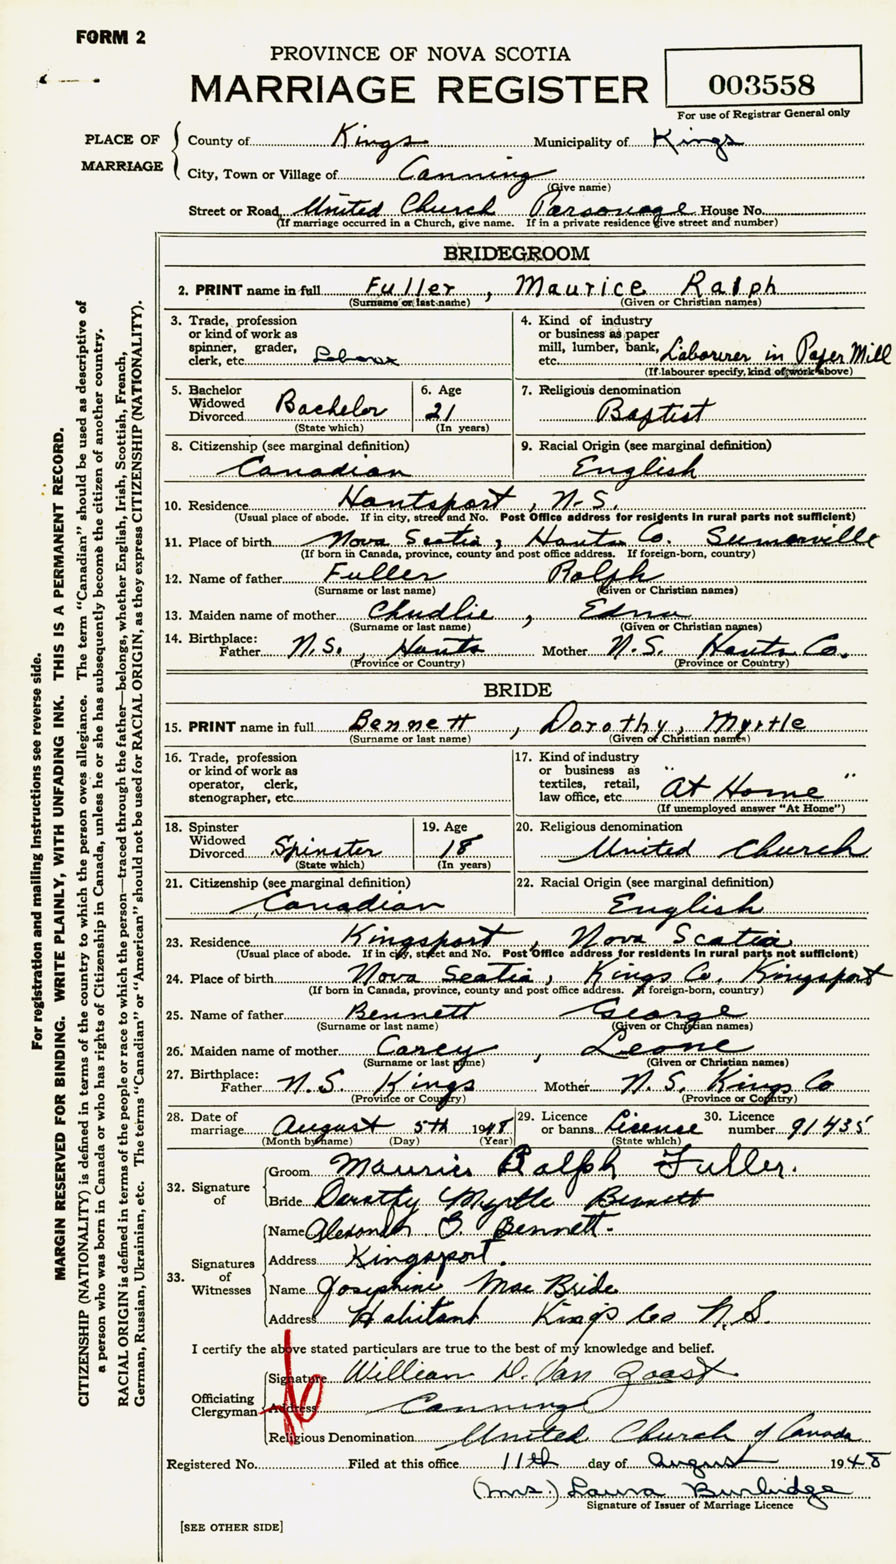 FORM 2
PROVINCE OF NOVA SCOTIA
MARRIAGE REGISTER
003558
For use of Registrar General only
PLACE OF MARRIAGE
County of Kings Municipality of Kings
City, Town or Village of Canning
(Give name)
Street or Road United Church Parsonage House No.
(If marriage occurred in a Church, give name. If in a private residence give street and number)
BRIDEGROOM
2. PRINT name in full Fuller, Maurice Ralph
(Surname or last name) (Given or Christian names)
3. Trade, profession or kind of work as spinner, grader, clerk, etc. Labour
4. Kind of industry or business as paper mill, lumber, bank, etc. Labourer in Paper Mill
(If labourer specify kind of work above)
5. Bachelor Widowed Divorced Bachelor
(State which)
6. Age 21
(In years)
7. Religious denomination Baptist
8. Citizenship (see marginal definition) Canadian
9. Racial Origin (see marginal definition) English
10. Residence Hantsport, N.S.
(Usual place of abode. If in city, street and No. Post Office address for residents in rural parts not sufficient)
11. Place of birth Nova Scotia, Hants Co. Summerville
(If born in Canada, province, county and post office address. If foreign-born, country)
12. Name of father Fuller Ralph
(Surname or last name) (Given or Christian names)
13. Maiden name of mother Chudlie, Edna
(Surname or last name) (Given or Christian names)
14. Birthplace:
Father N.S., Hants Mother N.S. Hants Co.
(Province or Country) (Province or Country)
BRIDE
15. PRINT name in full Bennett, Dorothy, Myrtle
(Surname or last name) (Given or Christian names)
16. Trade, profession or kind of work as operator, clerk, stenographer, etc.
17. Kind of industry or business as textiles, retail, law office, etc. "At Home"
(If unemployed answer "At Home")
18. Spinster Widowed Divorced Spinster
(State which)
19. Age 18
(In years)
20. Religious denomination United Church
21. Citizenship (see marginal definition) Canadian
22. Racial Origin (see marginal definition) English
23. Residence Kingsport, Nova Scotia
(Usual place of abode. If in city, street and No. Post Office address for residents in rural parts not sufficient)
24. Place of birth Nova Scotia, Kings Co. Kingsport
(If born in Canada, province, county and post office address. If foreign-born, country)
25. Name of father Bennett George
(Surname or last name) (Given or Christian names)
26. Maiden name of mother Carey, Leone
(Surname or last name) (Given or Christian names)
27. Birthplace:
Father N.S. Kings Mother N.S. Kings Co
(Province or Country) (Province or Country)
28. Date of marriage August 5th 1948
(Month by name) (Day) (Year)
29. Licence or banns License
(State which)
30. Licence number 91435
32. Signature of
Groom Maurice Ralph Fuller.
Bride Dorothy Myrtle Bennett
33. Signatures of Witnesses
Name Alexander G. Bennett.
Address Kingsport.
Name Josephine MacBride
Address Habitant Kings Co N.S.
I certify the above stated particulars are true to the best of my knowledge and belief.
Officiating Clergyman
Signature William D. Van Zoast
Address Canning
Religious Denomination United Church of Canada
Registered No. Filed at this office 11th day of August 1948
(Mrs.) Laura Burbidge
Signature of Issuer of Marriage Licence
[SEE OTHER SIDE]
For registration and mailing instructions see reverse side.
MARGIN RESERVED FOR BINDING. WRITE PLAINLY, WITH UNFADING INK. THIS IS A PERMANENT RECORD.
CITIZENSHIP (NATIONALITY) is defined in terms of the country to which the person owes allegiance. The term "Canadian" should be used as descriptive of
a person who was born in Canada or who has rights of Citizenship in Canada, unless he or she has subsequently become the citizen of another country.
RACIAL ORIGIN is defined in terms of the people or race to which the person—traced through the father—belongs, whether English, Irish, Scottish, French,
German, Russian, Ukrainian, etc. The terms "Canadian" or "American" should not be used for RACIAL ORIGIN, as they express CITIZENSHIP (NATIONALITY).